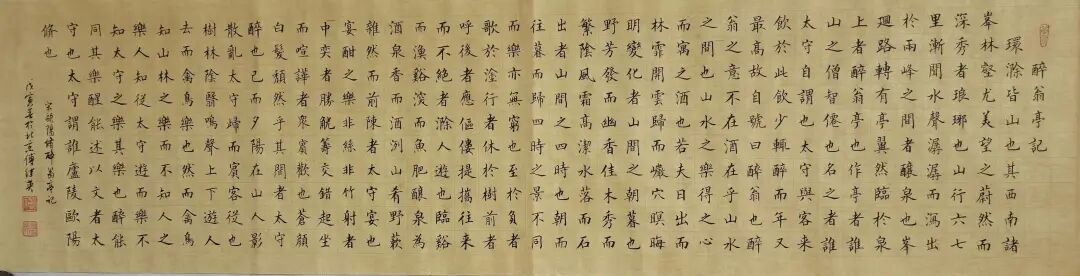 醉翁亭記
環滁皆山也其西南諸
峯林壑尤美望之蔚然而
深秀者琅琊也山行六七
里漸聞水聲潺潺而瀉出
於兩峰之間者釀泉也峯
迴路轉有亭翼然臨於泉
上者醉翁亭也作亭者誰
山之僧智僊也名之者誰
太守自謂也太守與客來
飲於此飲少輒醉而年又
最高故自號曰醉翁也醉
翁之意不在酒在乎山水
之間也山水之樂得之心
而寓之酒也若夫日出而
林霏開雲歸而巖穴暝晦
明變化者山間之朝暮也
野芳發而幽香佳木秀而
繁陰風霜高潔水落而石
出者山間之四時也朝而
往暮而歸四時之景不同
而樂亦無窮也至於負者
歌於塗行者休於樹前者
呼後者應傴僂提攜往來
而不絕者滁人遊也臨谿
而漁谿深而魚肥釀泉為
酒泉香而酒洌山肴野蔌
雜然而前陳者太守宴也
宴酣之樂非絲非竹射者
中奕者勝觥籌交錯起坐
而諠譁者衆賓歡也蒼顏
白髮頹然乎其間者太守
醉也已而夕陽在山人影
散亂太守歸而賓客從也
樹林陰翳鳴聲上下遊人
去而禽鳥樂也然而禽鳥
知山林之樂而不知人之
樂人知從太守遊而樂不
知太守之樂其樂也醉能
同其樂醒能述以文者太
守也太守謂誰廬陵歐陽
脩也
宋歐陽修醉翁亭記
戊寅春於北京